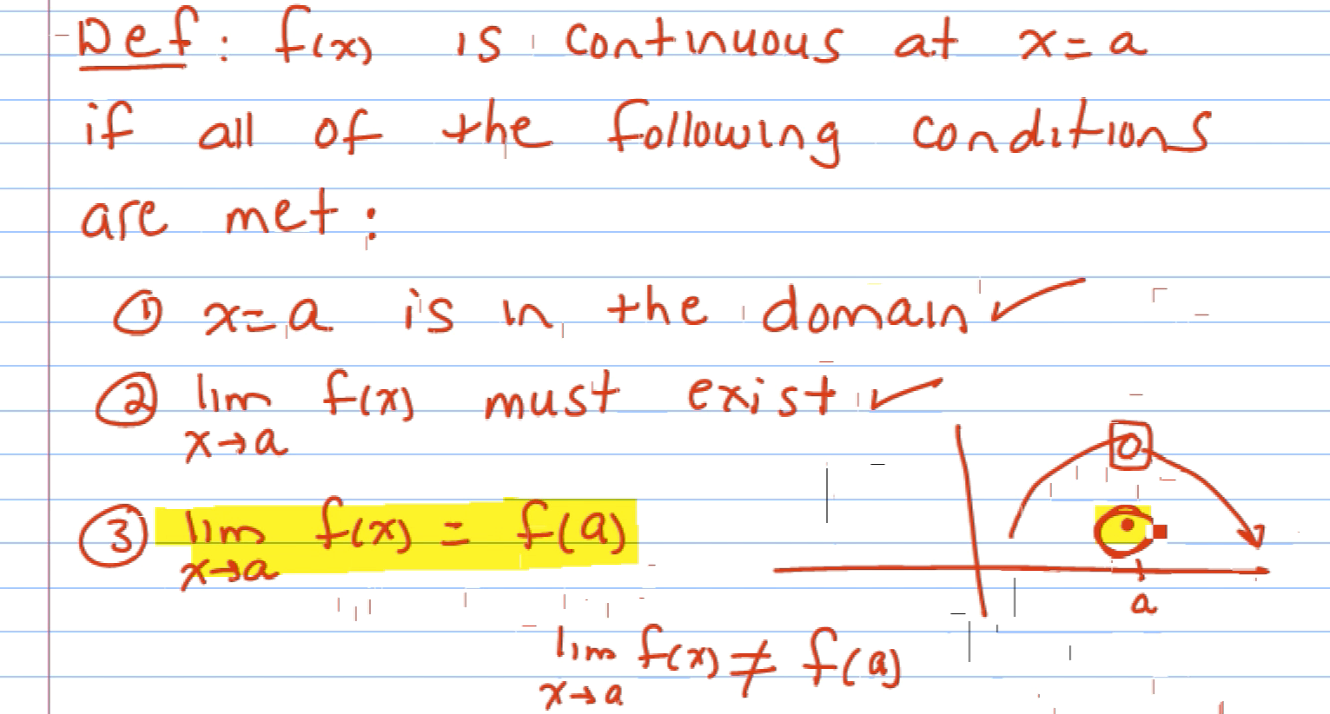 Def: f(x) is continuous at x=a
if all of the following conditions
are met:
① x=a is in the domain ✓
② lim f(x) must exist ✓
x→a
③ lim f(x) = f(a)
x→a
a
lim f(x) ≠ f(a)
x→a